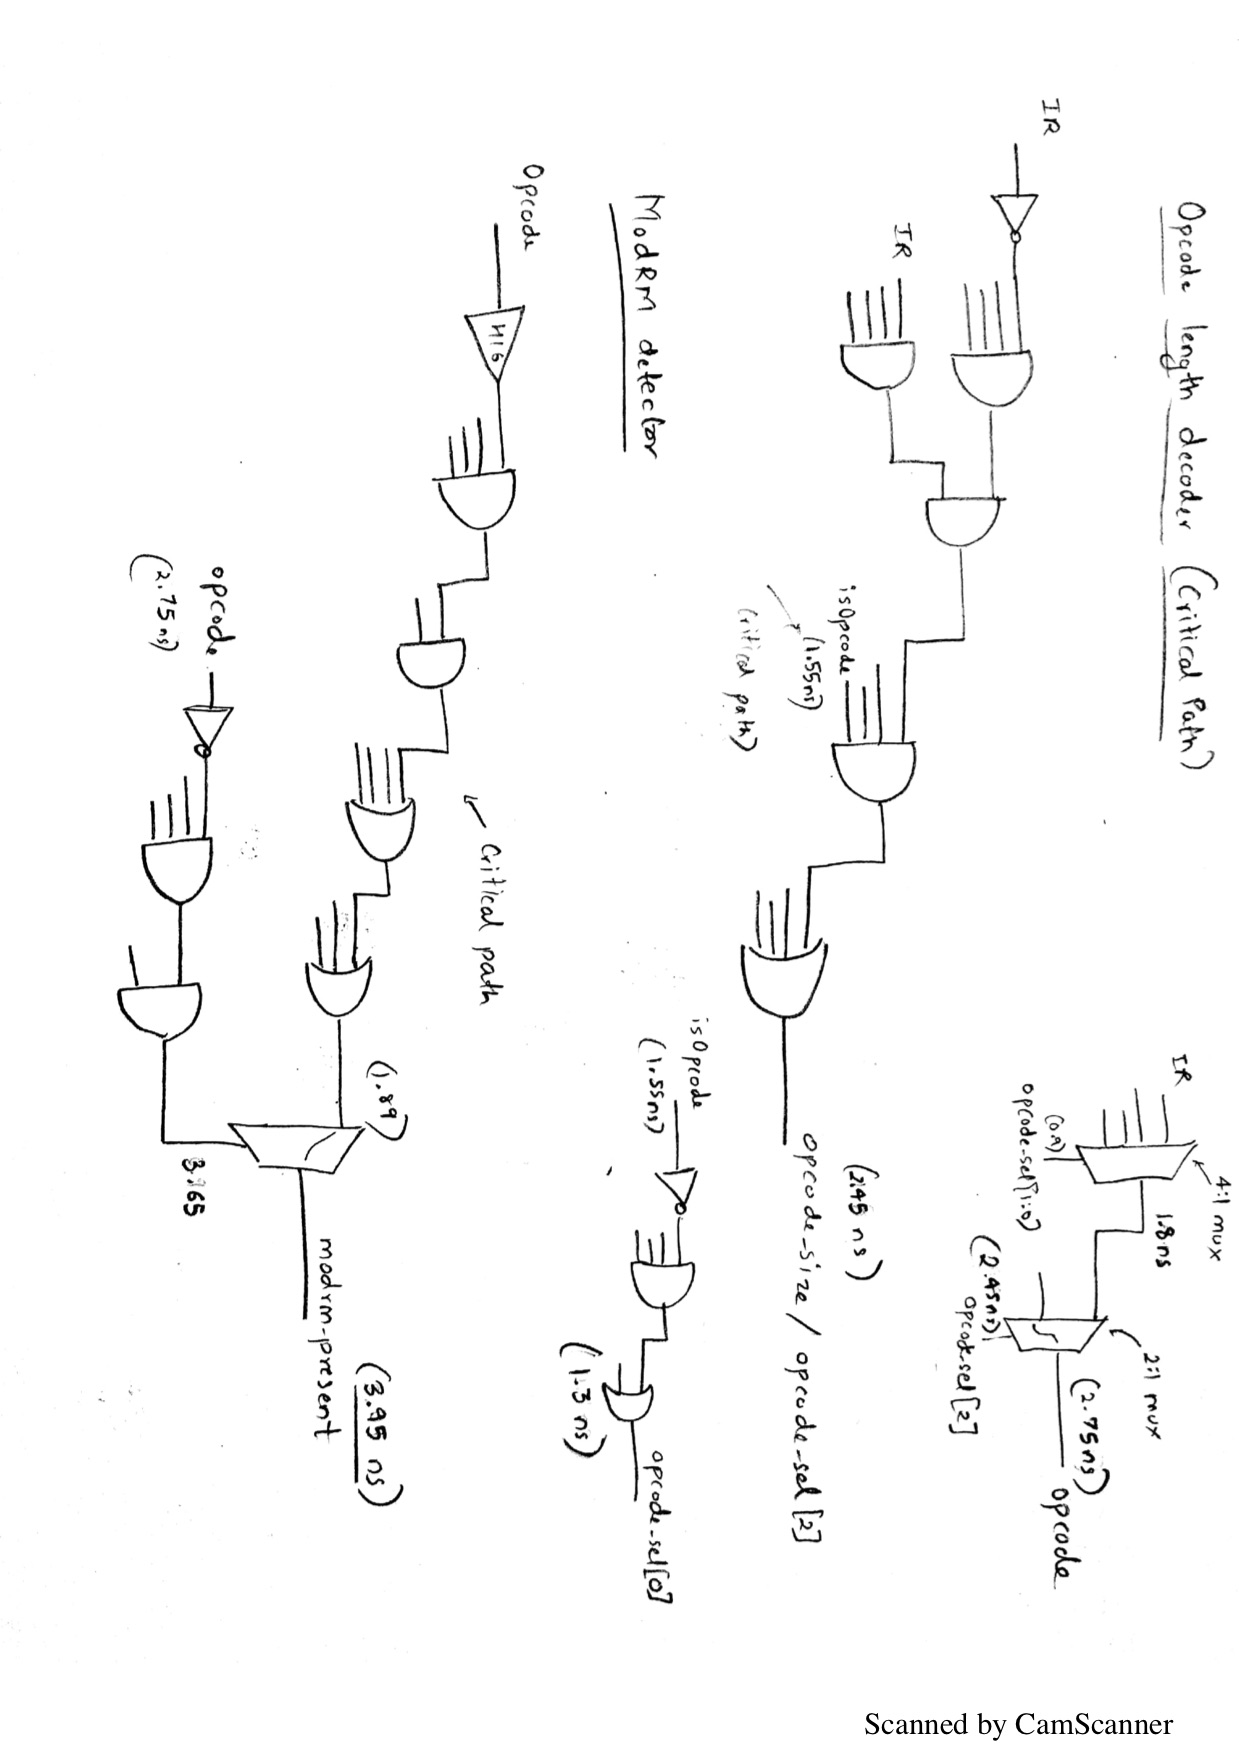 Opcode length decoder (Critical Path)
IR
IR
isOpcode
(1.55ns)
Critical path)
(2.45 ns)
opcode-size / opcode-sel [2]
IR
4:1 mux
(0.9)
opcode-sel[1:0]
1.8ns
2:1 mux
(2.45ns)
opcode-sel[2]
(2.75ns)
opcode
isOpcode
(1.55ns)
(1.3 ns)
opcode-sel[0]
ModRM detector
Opcode
H16
Critical path
opcode
(2.75ns)
(1.89)
3.65
modrm-present
(3.95 ns)
Scanned by CamScanner